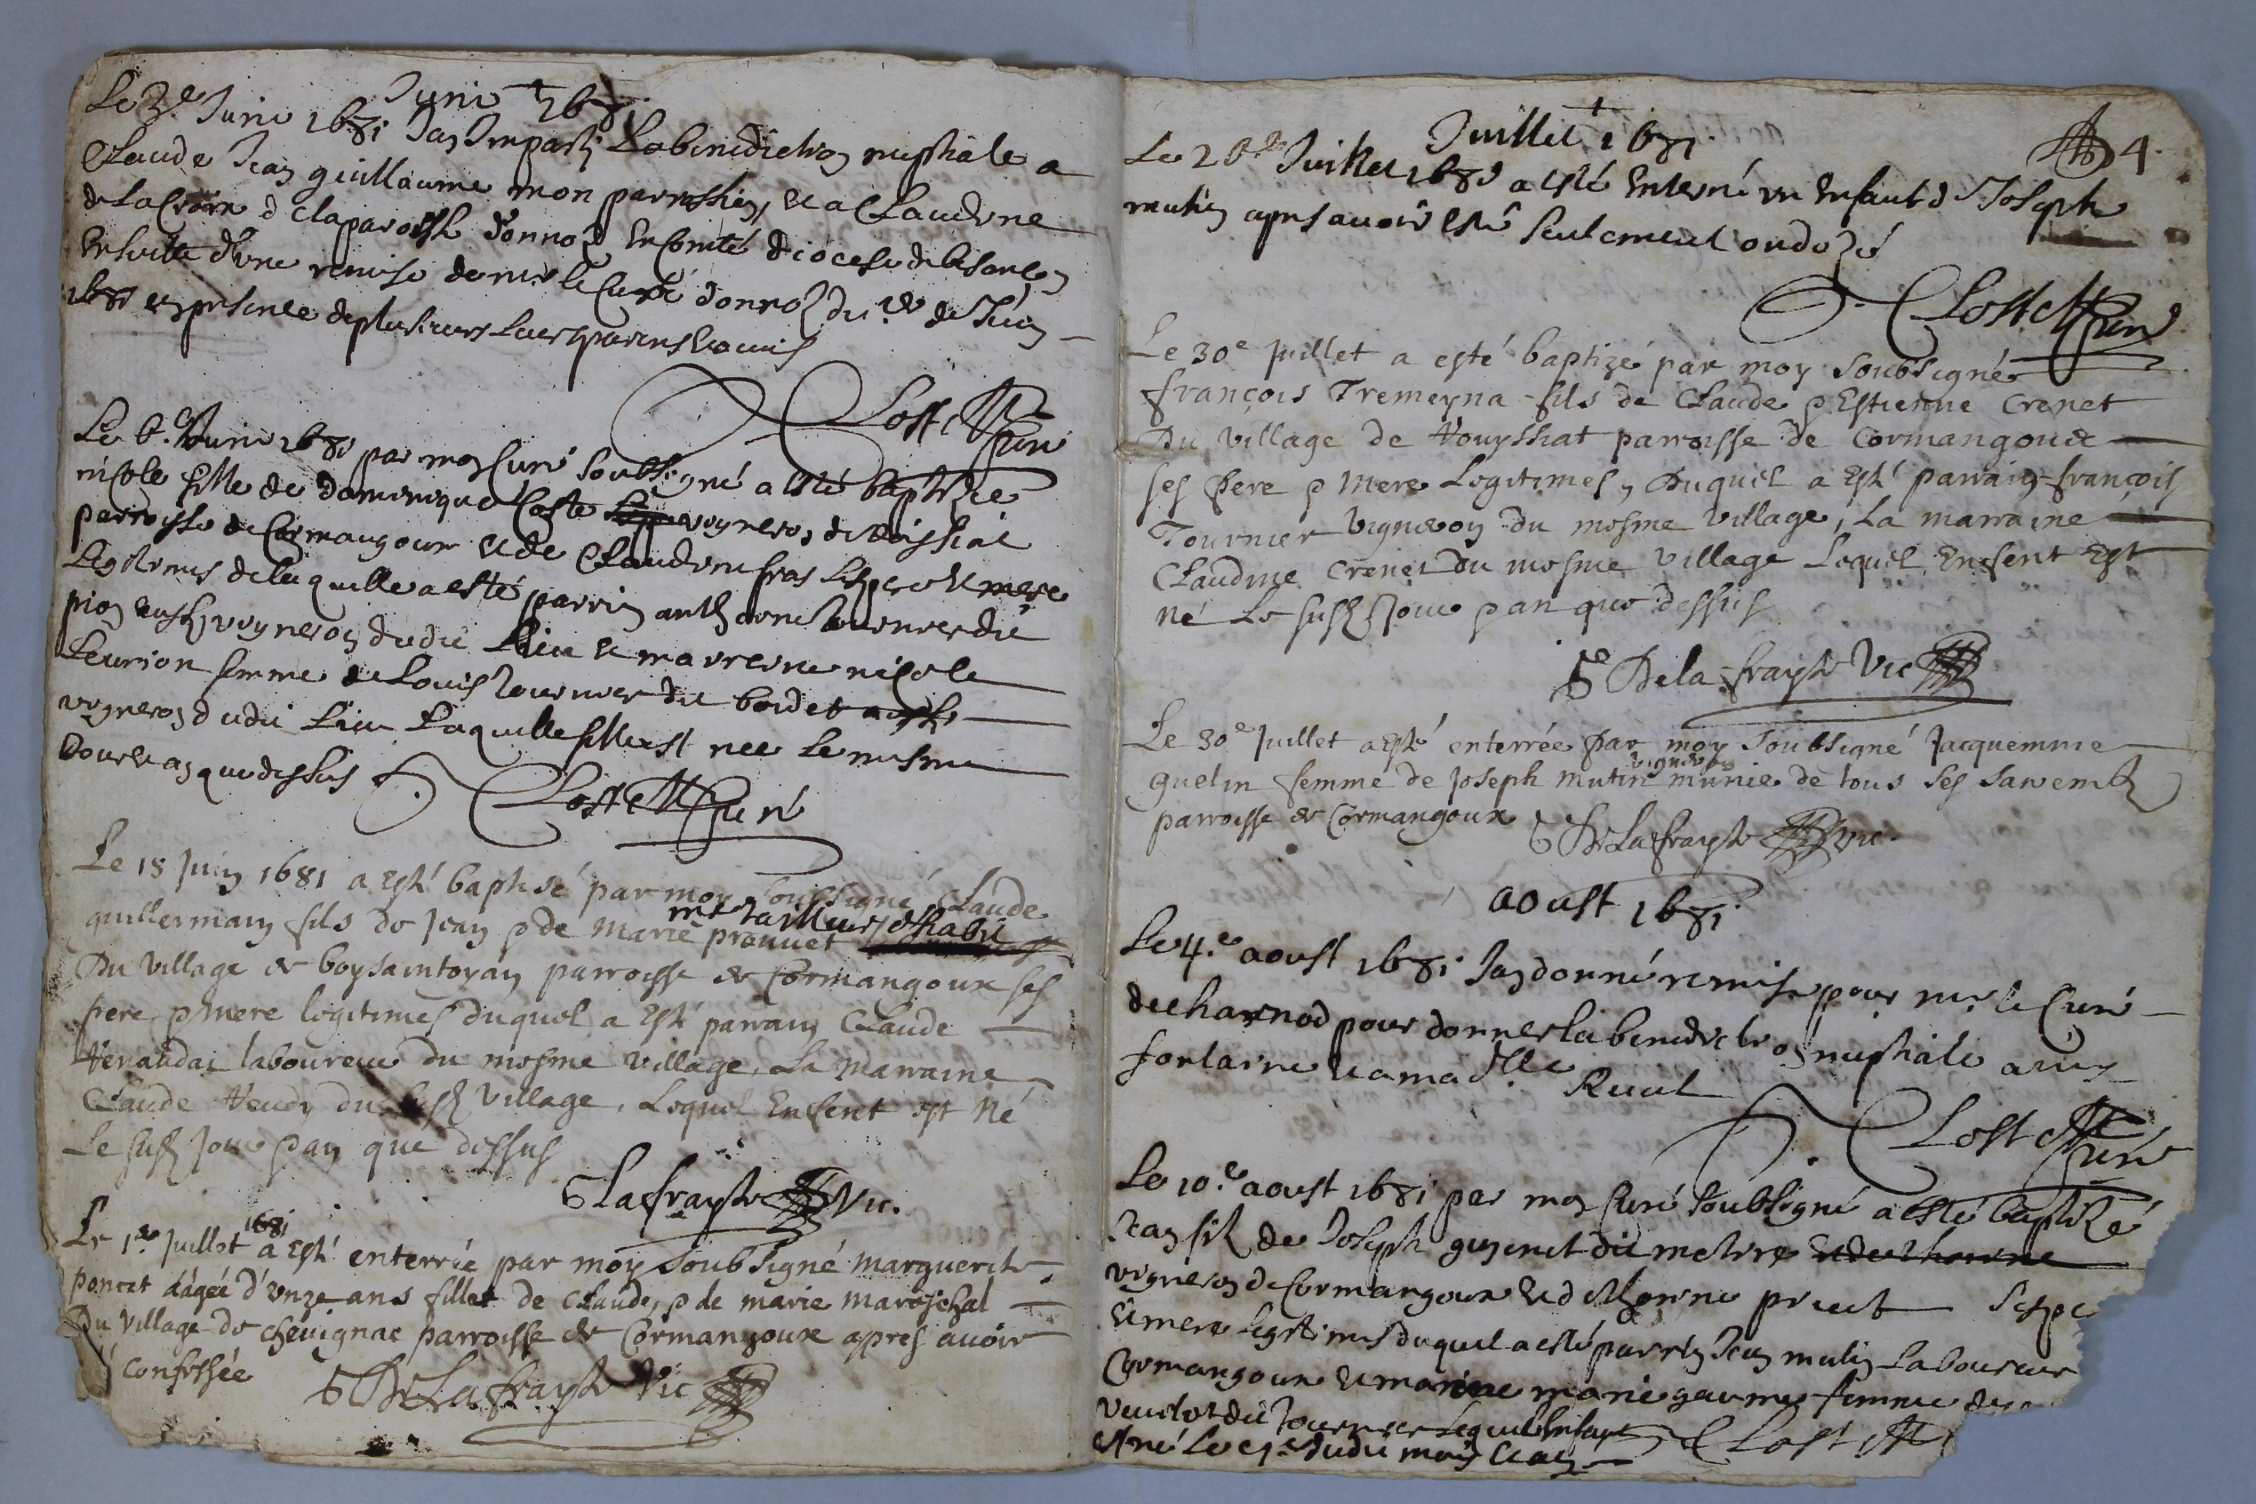 Juin 1681
Le 3.e Juin 1681 Jay Imparty La benediction nuptiale a
Claude Jean guillaume mon parroissien, et a Claudine
de La Croix de la paroisse donnoz En Comté diocese de besancon
Ensuitte d'une remise de mr le Curé donnoz du 1er de Juin
1681 en presence de plusieurs Leurs parens et amis
Coste Curé
Le 6.e Juin 1681 par moy Curé soubsigné a esté baptizée
nicole fille de dominique Coste vigneron de Voissiat
parroisse de Cormangoux et de Claudine fras ses pere et mere
Legitimes de laquelle a esté parrin anthoine tournier dit
pion aussy vigneron dudit Lieu et marreine nicole
Leurion femme de Louis tournier dit bordet
vigneron dudit Lieu Laquelle fille est nee Le mesme
Jour et an que dessus
Coste Curé
Le 18 Juin 1681 a esté baptisé par moy soussigné Claude
guillermain fils de Jean & de Marie prouvet mre tailleur d'habit
Du village de boysaintoyan parroisse de Cormangoux ses
pere & mere legitimes Duquel a Esté parrain Claude
Venaudat laboureur du mesme village, La marraine
Claude Veudy du susd village, Lequel Enfent est Né
Le susd Jour & an que dessus
Delafrayste Vic.
Le 1er Juillet 1681 a Esté enterrée par moy soubsigné Marguerite
poncet aâgée d'unze ans fille de Claude, & de marie mareschal
Du village de Chevignat parroisse de Cormangoux apres avoir
confessée
Delafrayste Vic
Juillet 1681
4.
Le 26.e Juillet 1681 a esté Enterré un Enfant de Joseph
mutin apres avoir esté seulement ondoyé
Coste Curé
Le 30e Juillet a esté baptizé par moy soubsigné
françois Tremeyna fils de Claude & Estienne Crenet
Du village de Vouyssiat parroisse de Cormangoux
ses pere & mere Legitimes, Duquel a Esté parrain françois
Tournier vigneron du mesme village, La marraine
Claudine Crenet du mesme village Lequel Enfent Est
né Le susd Jour & an que dessus
De la frayste Vic
Le 30e Juillet a Esté enterrée par moy soubsigné Jacquemme
guelin femme de Joseph mutin vigneron munie de tous ses saremts
parroisse de Cormangoux
Delafrayste Vic.
aoust 1681
Le 4.e aoust 1681 Jay donné remise pour mr. le Curé
de charnod pour donner la benediction nuptiale a
fontaine et a madlle Ruat
Coste Curé
Le 10.e aoust 1681 par moy Curé soubsigné a esté baptizé
Jean fils de Joseph guynet dit
vigneron de Cormangoux et d'Ethienne pruet ses pe
et mere Legitimes duquel a esté parrin Jean mutin Laboureur
Cormangoux et marine marie gaumes femme de
veudet dit tournier Lequel Enfant
est né Le 9.e dudit mois et an
Coste